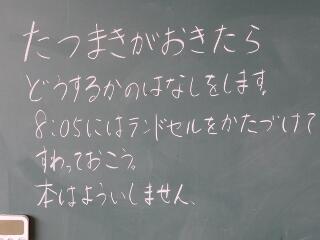 たつまきがおきたら
どうするかのはなしをします。
8:05にはランドセルをかたづけて
すわっておこう。
本はよういしません、